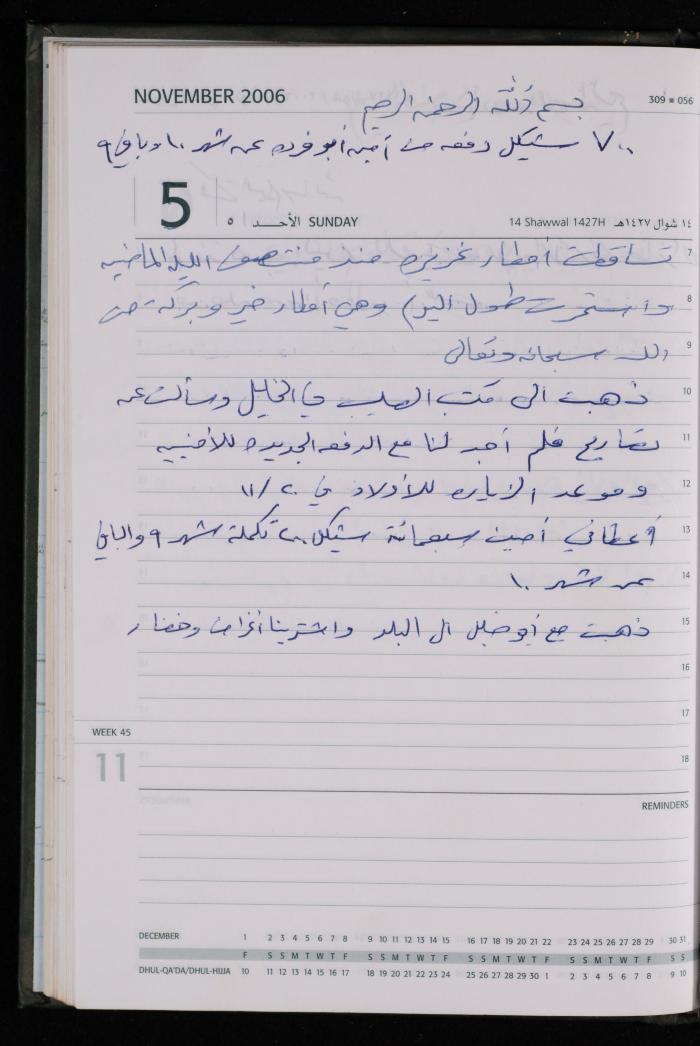 NOVEMBER 2006
309 ■ 056
بسم الله الرحمن الرحيم
٧٠٠ شيكل دفعه من أمين أبو فوده عن شهر ١٠ وباقي ٩
5
٥ الأحــد SUNDAY
14 Shawwal 1427H ١٤ شوال ١٤٢٧هـ
7 تساقطت أمطار غزيره منذ منتصف الليله الماضيه
8 واستمرت طول اليوم وهي أمطار خير وبركة من
9 الله سبحانه وتعالى
10 ذهبت الى مكتب الصليب في الخليل وسألت عن
11 تصاريح فلم أجد لنا مع الدفعه الجديده
12 وموعد الزياره للأولاد في ٢٠/١١
13 أعطاني أمين سبعمائة شيكل ٢٠٠ تكملة شهر ٩ والباقي
14 عن شهر ١٠
15 ذهبت مع أبو خليل الى البلد واشترينا أغراض وخضار
16
17
WEEK 45
11
18
REMINDERS
DECEMBER 1 2 3 4 5 6 7 8 9 10 11 12 13 14 15 16 17 18 19 20 21 22 23 24 25 26 27 28 29 30 31
F S S M T W T F S S M T W T F S S M T W T F S S M T W T F S S
DHUL-QA'DA/DHUL-HIJJA 10 11 12 13 14 15 16 17 18 19 20 21 22 23 24 25 26 27 28 29 30 1 2 3 4 5 6 7 8 9 10